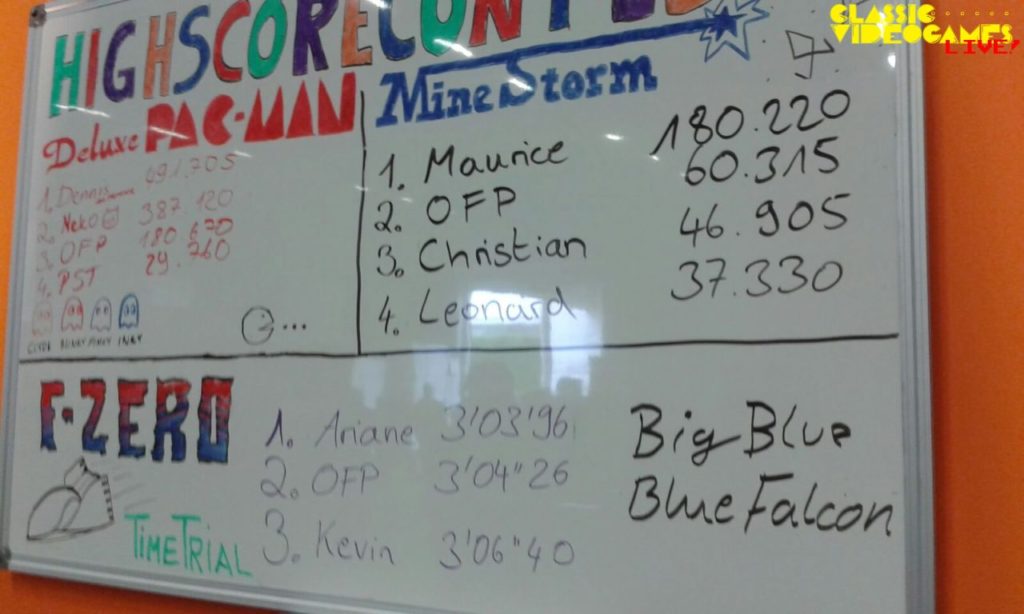 CLASSIC
VIDEOGAMES
LIVE!
HIGHSCORECON
Deluxe PAC-MAN
1. Dennis 691.705
2. Neko 387.120
3. OFP 180.670
4. PST 29.760
CLYDE BLINKY PINKY INKY
...
MineStorm
1. Maurice 180.220
2. OFP 60.315
3. Christian 46.905
4. Leonard 37.330
F-ZERO
TIMETRIAL
1. Ariane 3'03'96
2. OFP 3'04"26
3. Kevin 3'06"40
Big Blue
Blue Falcon